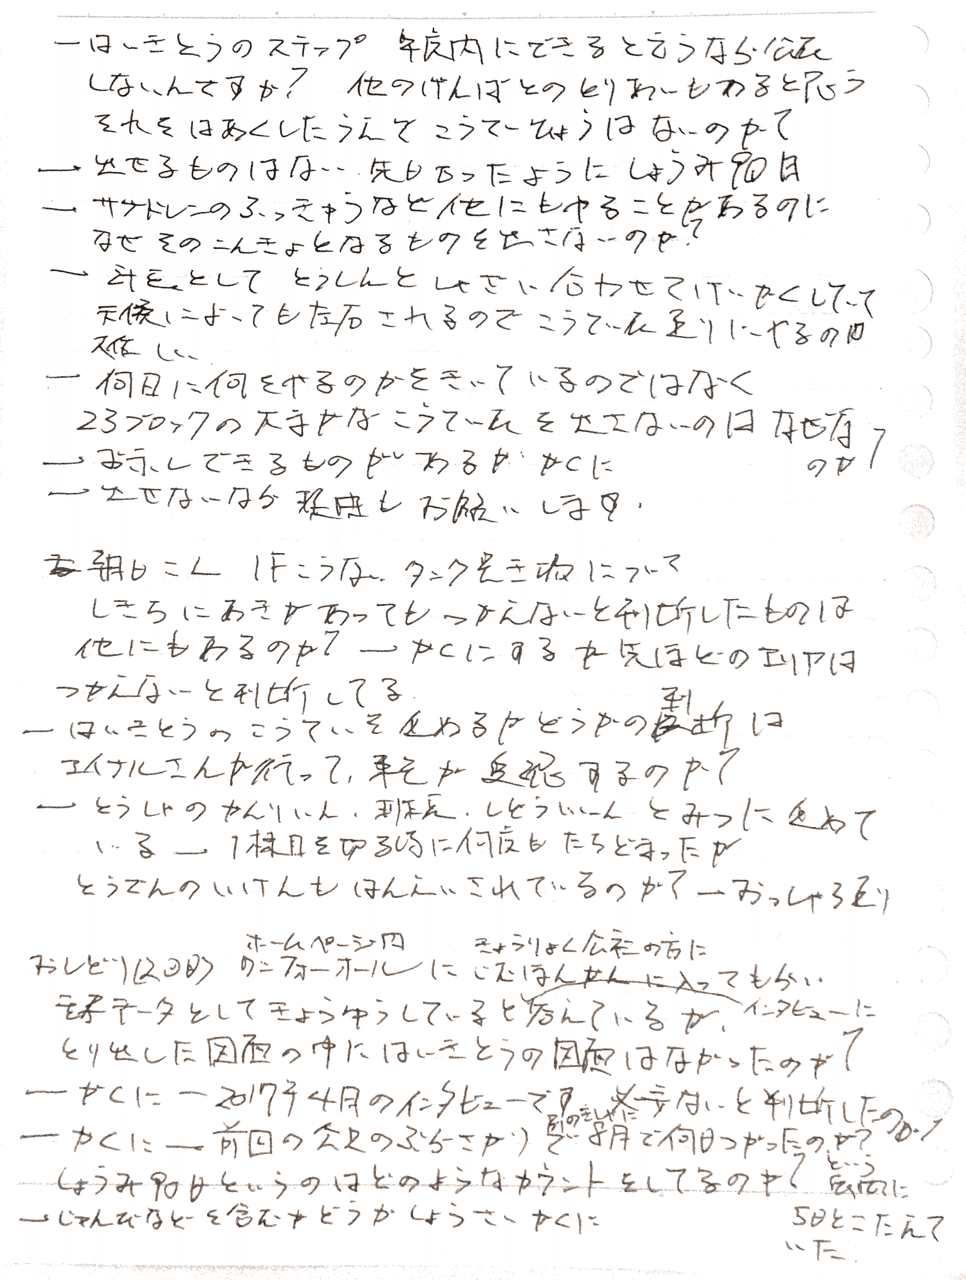 ー はいきとうのステップ 年度内にできると言うなら公表
しないんですか? 他のげんばとのとりあいもあると思う
それをはあくしたうえで こうていひょうはないのか?
→ 出せるものはない 先日言ったように しょうみ90日
ー サブドレンのふっきゅうなど他にもやることがあるのに
なぜ そのこんきょとなるものを出さないのか?
ー 計画として とうしんと しゃさい 合わせてけいかくしていて
天候によっても左右されるので こうてい表通りにやるのは
難しい
ー 何日に何をやるのかをきいているのではなく
23ブロックの大まかなこうてい表を出さないのはなぜな
のか?
→ お示しできるものがあるか かくに
→ 出せないなら 理由も お願いします。
朝日 こん 1Fこうない タンク 置き場について
しきちにあきがあってもつかえないと判断したものは
他にもあるのか? → かくにするが先ほどのエリアは
つかえないと判断してる
ー はいきとうの こうていを進めるかどうかの判断は
エイブルさんが行って、東電が 承認するのか?
→ とうしゃの かんりいん・班長・しどういいん とみつに進めて
いる → 1株目を切る時に何度も たちどまったが
とうでんのいけんも はんえいされているのか? → おっしゃる通り
おしどり(2回目) ホームページ内
ワンフォーオールに
きょうりょく公社の方に
じむほんかんに入ってもらい
電子データとしてきょうゆうしていると答えているが、 インタビューに
とり出した図面の中に はいきとうの図面はなかったのか?
→ かくに ー 2017年4月のインタビューです 必要ないと判断したのか?
→ かくに → 前回の会見のぶらさがり 別のきしゃに 8月で何日つかったのか?
という
質問に
5日とこたえて
いた
しょうみ90日というのはどのようなカウントをしてるのか?
→ じゅんびなどを含むかどうか しょうさい かくに